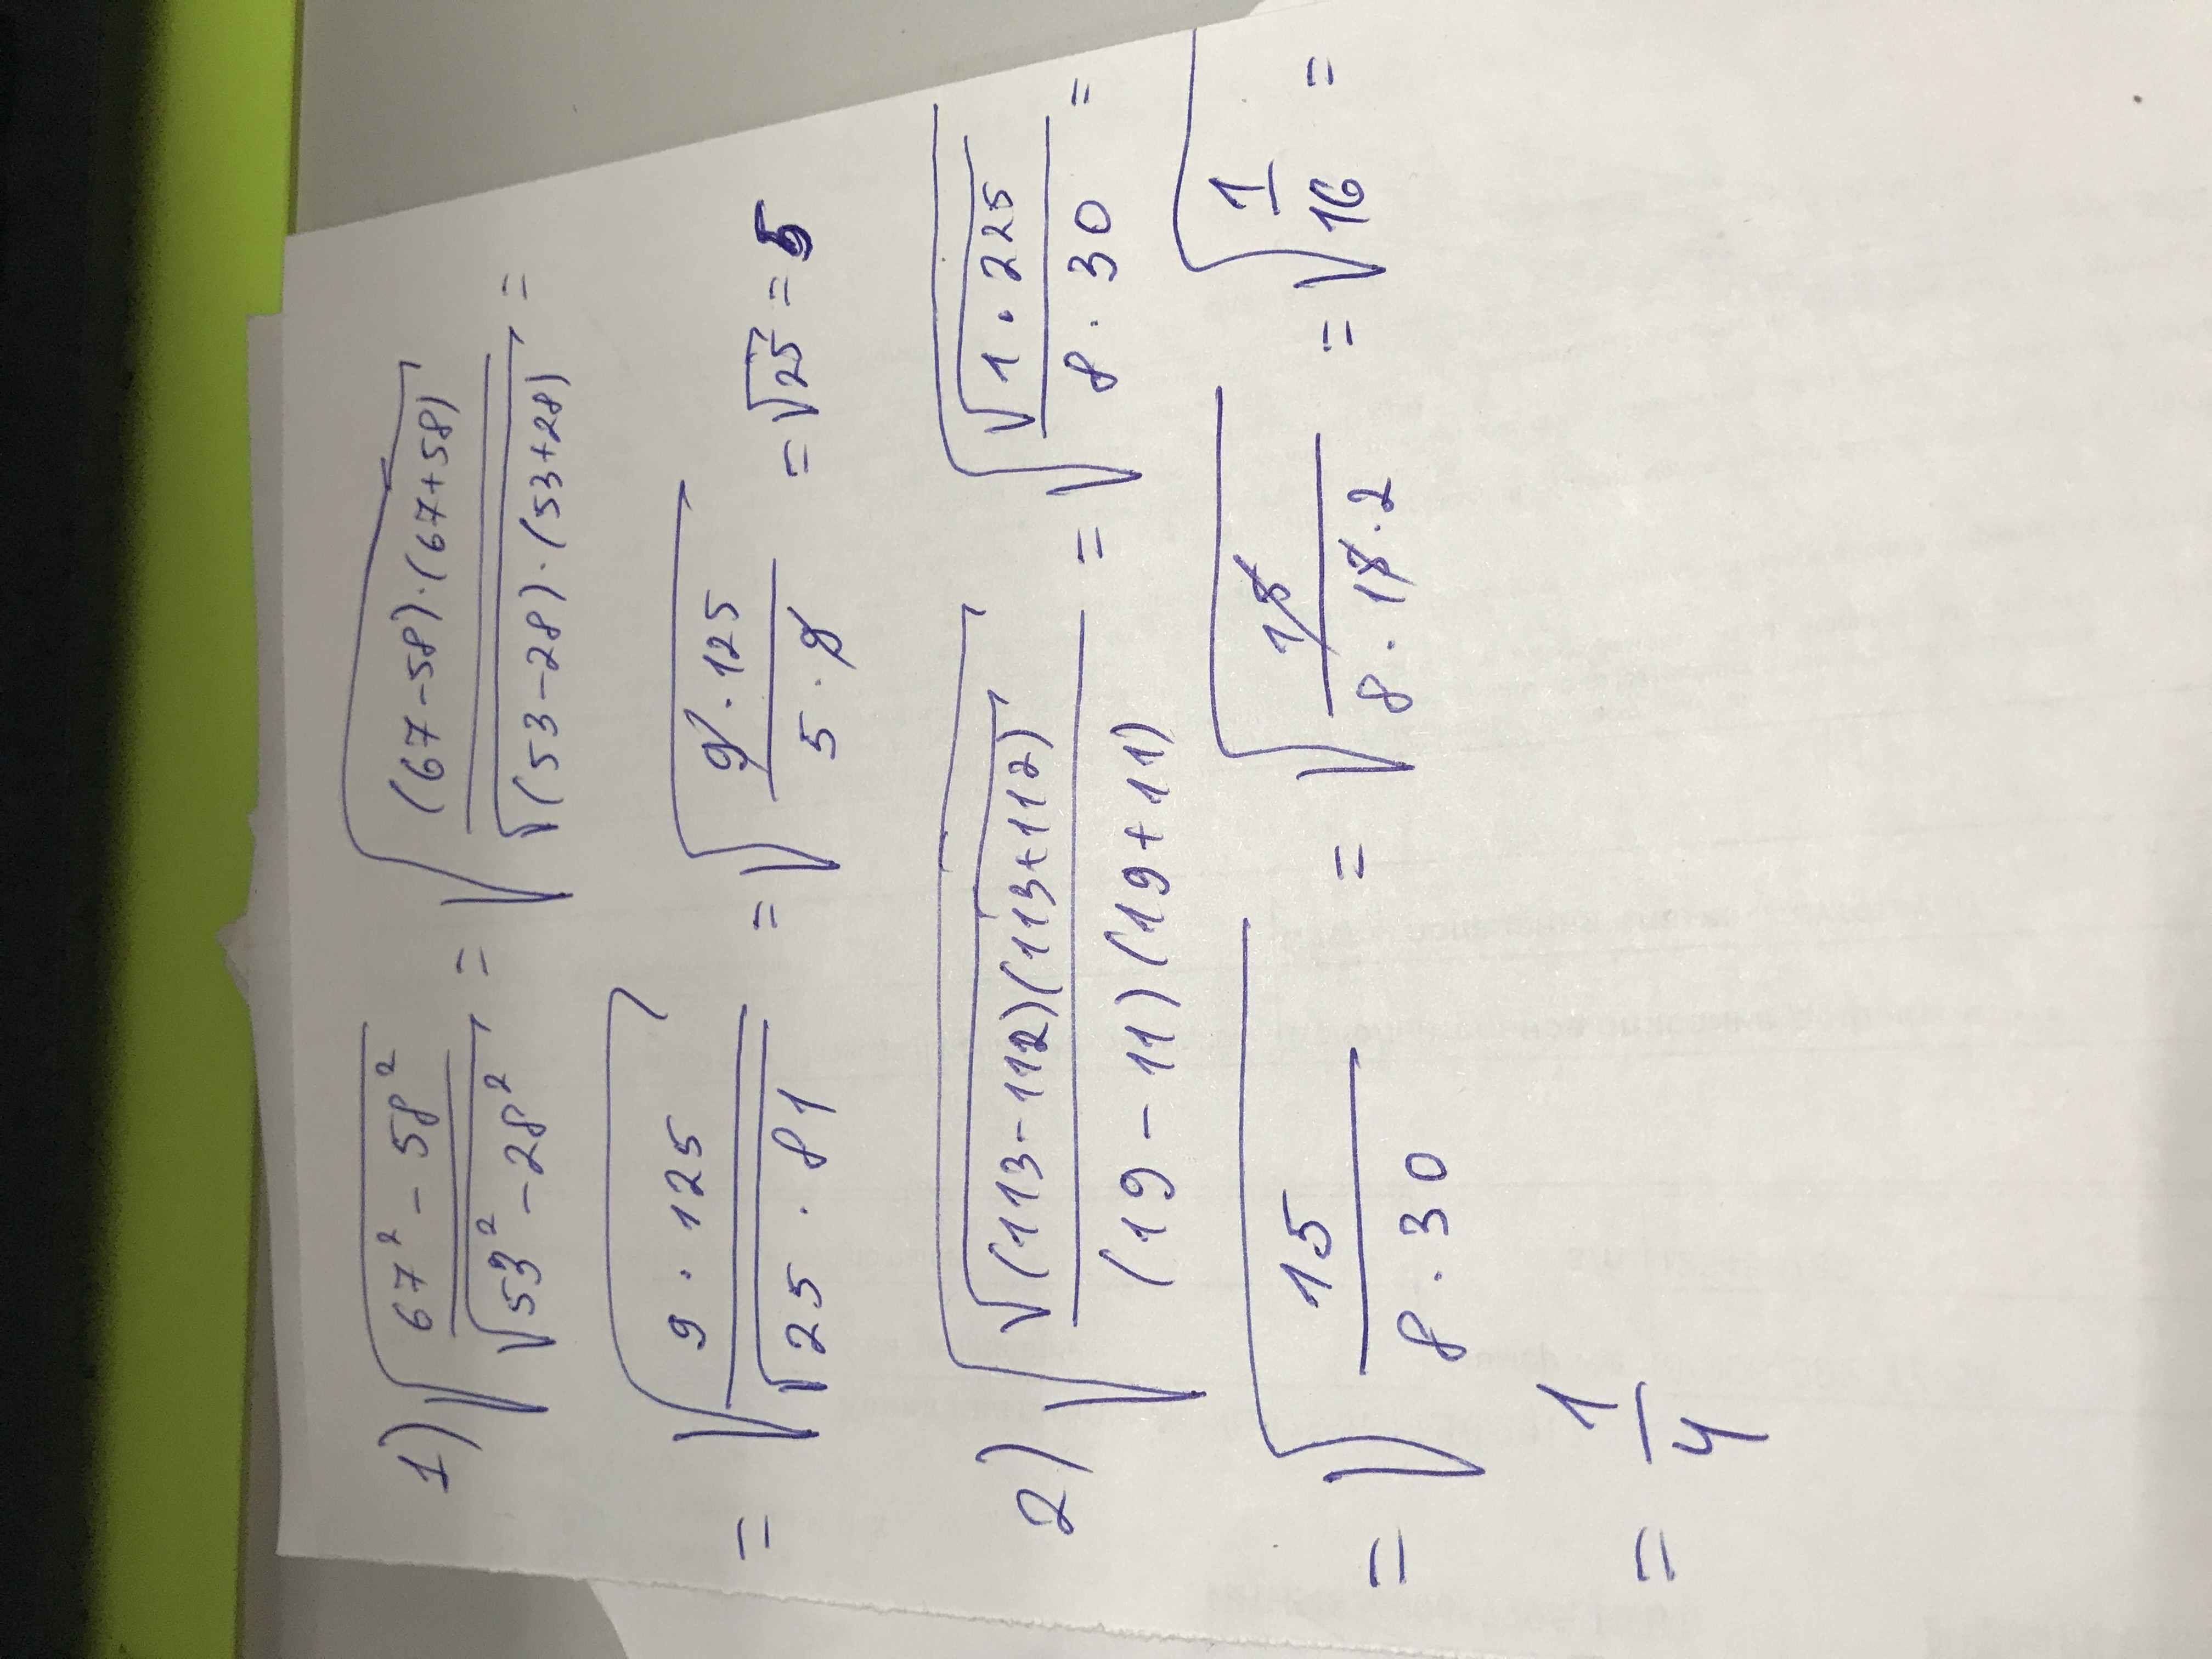 1) √((67² - 58²)/√(53² - 28²)) = √(((67 - 58)·(67 + 58))/√((53 - 28)·(53 + 28))) =
= √((9 · 125)/√(25 · 81)) = √((9 · 125)/(5 · 9)) = √25 = 5
2) √(√((113 - 112)(113 + 112))/((19 - 11)(19 + 11))) = √(√(1 · 225)/(8 · 30)) =
= √(15/(8 · 30)) = √(15/(8 · 15 · 2)) = √(1/16) =
= 1/4